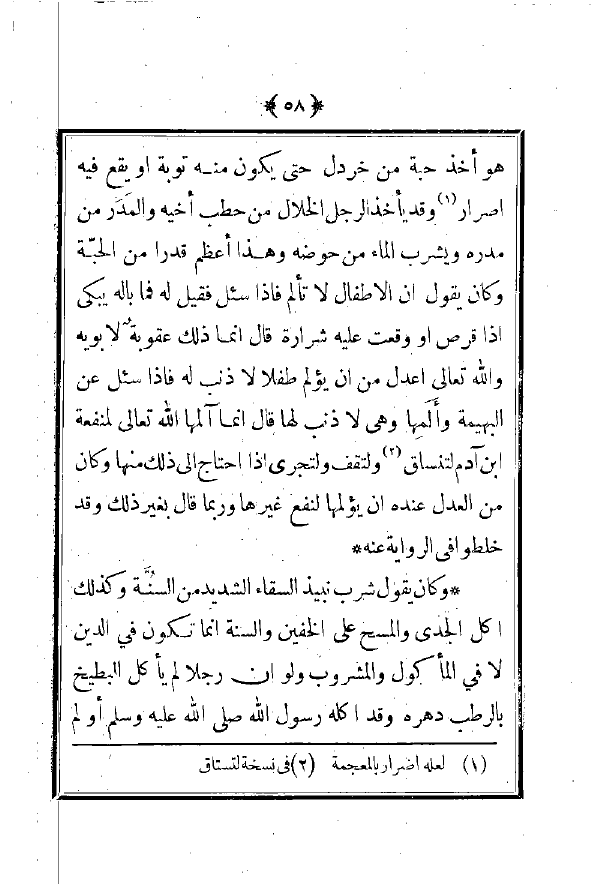 ﴿ ٥٨ ﴾
هو أخذ حبة من خردل حتى يكون منه توبة او يقع فيه
اصرار (١) وقد يأخذ الرجل الخلال من حطب أخيه والمَدَر من
مدره ويشرب الماء من حوضه وهذا أعظم قدرا من الحبّة
وكان يقول ان الاطفال لا تألم فاذا سئل فقيل له فما باله يبكى
اذا قرص او وقعت عليه شرارة قال انما ذلك عقوبةٌ لابويه
والله تعالى اعدل من ان يؤلم طفلا لا ذنب له فاذا سئل عن
البهيمة وأَلَمِها وهى لا ذنب لها قال انما آلمها الله تعالى لمنفعة
ابن آدم لتنساق (٢) ولتقف ولتجرى اذا احتاج الى ذلك منها وكان
من العدل عنده ان يؤلمها لنفع غيرها وربما قال بغير ذلك وقد
خلطوا فى الرواية عنه*
*وكان يقول شرب نبيذ السقاء الشديد من السنّة وكذلك
اكل الجدى والمسح على الخفين والسنة انما تكون في الدين
لا في المأكول والمشروب ولو ان رجلا لم يأكل البطيخ
بالرطب دهره وقد اكله رسول الله صلى الله عليه وسلم أو لم
(١) لعله اضرار بالمعجمة (٢) فى نسخة لتستاق